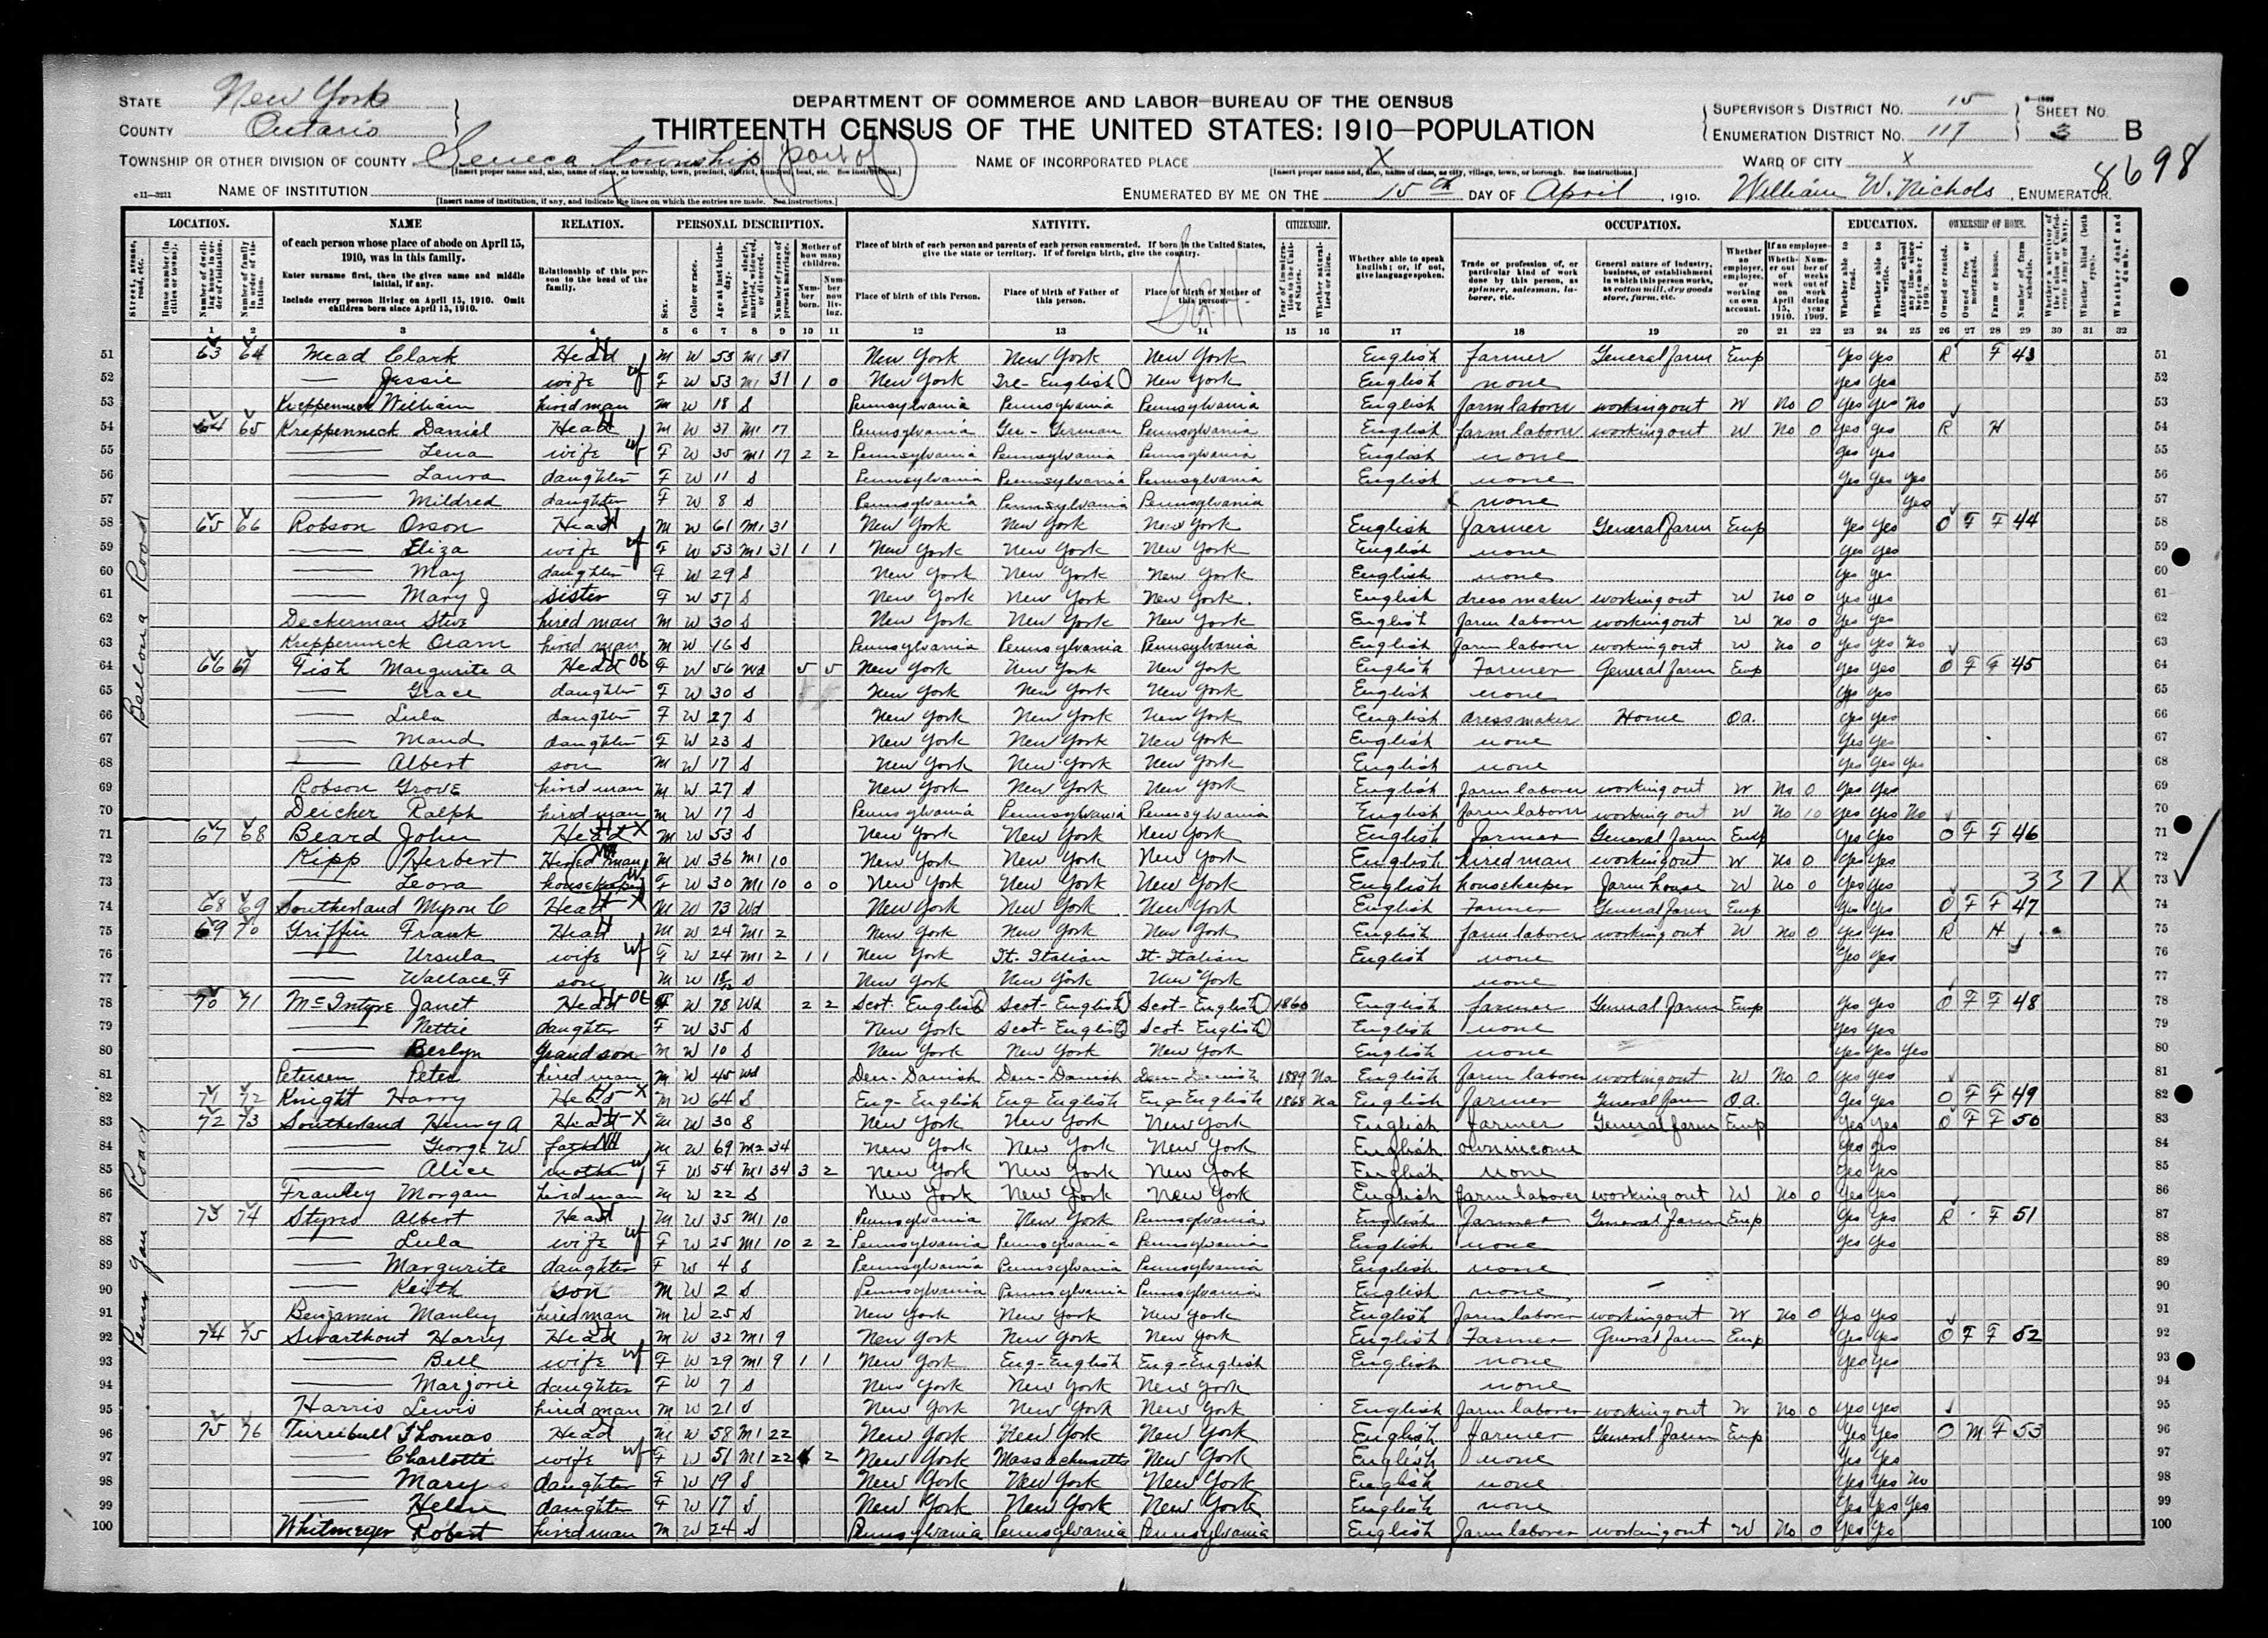 STATE New York
COUNTY Ontario
DEPARTMENT OF COMMERCE AND LABOR—BUREAU OF THE CENSUS
THIRTEENTH CENSUS OF THE UNITED STATES: 1910—POPULATION
SUPERVISOR'S DISTRICT NO. 15
ENUMERATION DISTRICT NO. 117
SHEET NO. 3 B
8698
TOWNSHIP OR OTHER DIVISION OF COUNTY Seneca township (part of)
NAME OF INCORPORATED PLACE X
WARD OF CITY X
NAME OF INSTITUTION X
ENUMERATED BY ME ON THE 15th DAY OF April, 1910. William W. Nichols, ENUMERATOR.
LOCATION. NAME RELATION. PERSONAL DESCRIPTION. NATIVITY. CITIZENSHIP. OCCUPATION. EDUCATION. OWNERSHIP OF HOME.
of each person whose place of abode on April 15, 1910, was in this family.
Enter surname first, then the given name and middle initial, if any.
Include every person living on April 15, 1910. Omit children born since April 15, 1910.
Relationship of this person to the head of the family.
Place of birth of each person and parents of each person enumerated. If born in the United States, give the state or territory. If of foreign birth, give the country.
Place of birth of this Person. Place of birth of Father of this person. Place of birth of Mother of this person.
Whether able to speak English; or, if not, give language spoken.
Trade or profession of, or particular kind of work done by this person, as spinner, salesman, laborer, etc.
General nature of industry, business, or establishment in which this person works, as cotton mill, dry goods store, farm, etc.
1 2 3 4 5 6 7 8 9 10 11 12 13 14 15 16 17 18 19 20 21 22 23 24 25 26 27 28 29 30 31 32
Bellona Road
51 63 64 Mead Clark Head M W 53 M1 31 New York New York New York English Farmer General farm Emp Yes Yes R F 43 51
52 — Jessie wife F W 53 M1 31 1 0 New York Ire-English New York English none Yes Yes 52
53 Kreppenneck William hired man M W 18 S Pennsylvania Pennsylvania Pennsylvania English farm laborer working out W No 0 Yes Yes No 53
54 64 65 Kreppenneck Daniel Head M W 37 M1 17 Pennsylvania Ger-German Pennsylvania English farm laborer working out W No 0 Yes Yes R H 54
55 — Lena wife F W 35 M1 17 2 2 Pennsylvania Pennsylvania Pennsylvania English none Yes Yes 55
56 — Laura daughter F W 11 S Pennsylvania Pennsylvania Pennsylvania English none Yes Yes Yes 56
57 — Mildred daughter F W 8 S Pennsylvania Pennsylvania Pennsylvania none Yes 57
58 65 66 Robson Orson Head M W 61 M1 31 New York New York New York English farmer General farm Emp Yes Yes O F F 44 58
59 — Eliza wife F W 53 M1 31 1 1 New York New York New York English none Yes Yes 59
60 — May daughter F W 29 S New York New York New York English none Yes Yes 60
61 — Mary J sister F W 57 S New York New York New York English dress maker working out W No 0 Yes Yes 61
62 Deckerman Steve hired man M W 30 S New York New York New York English farm laborer working out W No 0 Yes Yes 62
63 Kreppenneck Oram hired man M W 16 S Pennsylvania Pennsylvania Pennsylvania English farm laborer working out W No 0 Yes Yes No 63
64 66 67 Fish Margurite A Head F W 56 Wd 5 5 New York New York New York English Farmer General farm Emp Yes Yes O F F 45 64
65 — Grace daughter F W 30 S New York New York New York English none Yes Yes 65
66 — Lula daughter F W 27 S New York New York New York English dressmaker Home Oa. Yes Yes 66
67 — Maud daughter F W 23 S New York New York New York English none Yes Yes 67
68 — Albert son M W 17 S New York New York New York English none Yes Yes Yes 68
69 Robson Grove hired man M W 27 S New York New York New York English farm laborer working out W No 0 Yes Yes 69
70 Deicher Ralph hired man M W 17 S Pennsylvania Pennsylvania Pennsylvania English farm laborer working out W No 10 Yes Yes No 70
Penn Yan Road
71 67 68 Beard John Head M W 53 S New York New York New York English farmer General farm Emp Yes Yes O F F 46 71
72 Kipp Herbert Hired man M W 36 M1 10 New York New York New York English hired man working out W No 0 Yes Yes 72
73 — Leora housekeeper F W 30 M1 10 0 0 New York New York New York English housekeeper farm house W No 0 Yes Yes 3 3 7 X 73
74 68 69 Southerland Myron C Head M W 73 Wd New York New York New York English Farmer General farm Emp Yes Yes O F F 47 74
75 69 70 Griffin Frank Head M W 24 M1 2 New York New York New York English farm laborer working out W No 0 Yes Yes R H 75
76 — Ursula wife F W 24 M1 2 1 1 New York It. Italian It. Italian English none Yes Yes 76
77 — Wallace F son M W S New York New York New York none 77
78 70 71 McIntyre Janet Head F W 78 Wd 2 2 Scot-English Scot-English Scot-English 1860 English farmer General farm Emp Yes Yes O F F 48 78
79 — Nettie daughter F W 35 S New York Scot-English Scot-English English none Yes Yes 79
80 — Berlyn Grandson M W 10 S New York New York New York English none Yes Yes Yes 80
81 Petersen Peter hired man M W 45 Wd Den-Danish Den-Danish Den-Danish 1889 Na English farm laborer working out W No 0 Yes Yes 81
82 71 72 Knight Harry Head M W 64 S Eng-English Eng-English Eng-English 1868 Na English farmer General farm Oa. Yes Yes O F F 49 82
83 72 73 Southerland Henry A Head M W 30 S New York New York New York English farmer General farm Emp Yes Yes O F F 50 83
84 — George W father M W 69 M2 34 New York New York New York English own income Yes Yes 84
85 — Alice mother F W 54 M1 34 3 2 New York New York New York English none Yes Yes 85
86 Frauley Morgan hired man M W 22 S New York New York New York English farm laborer working out W No 0 Yes Yes 86
87 73 74 Styres Albert Head M W 35 M1 10 Pennsylvania New York Pennsylvania English farmer General farm Emp Yes Yes R F 51 87
88 — Lula wife F W 25 M1 10 2 2 Pennsylvania Pennsylvania Pennsylvania English none Yes Yes 88
89 — Margurite daughter F W 4 S Pennsylvania Pennsylvania Pennsylvania English none 89
90 — Keith son M W 2 S Pennsylvania Pennsylvania Pennsylvania English none 90
91 Benjamin Manley hired man M W 25 S New York New York New York English farm laborer working out W No 0 Yes Yes 91
92 74 75 Swarthout Harry Head M W 32 M1 9 New York New York New York English Farmer General farm Emp Yes Yes O F F 52 92
93 — Bell wife F W 29 M1 9 1 1 New York Eng-English Eng-English English none Yes Yes 93
94 — Marjorie daughter F W 7 S New York New York New York none 94
95 Harris Lewis hired man M W 21 S New York New York New York English farm laborer working out W No 0 Yes Yes 95
96 75 76 Turnbull Thomas Head M W 58 M1 22 New York New York New York English farmer General farm Emp Yes Yes O M F 53 96
97 — Charlotte wife F W 51 M1 22 2 New York Massachusetts New York English none Yes Yes 97
98 — Mary daughter F W 19 S New York New York New York English none Yes Yes No 98
99 — Helen daughter F W 17 S New York New York New York English none Yes Yes Yes 99
100 Whitmeyer Robert hired man M W 24 S Pennsylvania Pennsylvania Pennsylvania English farm laborer working out W No 0 Yes Yes 100